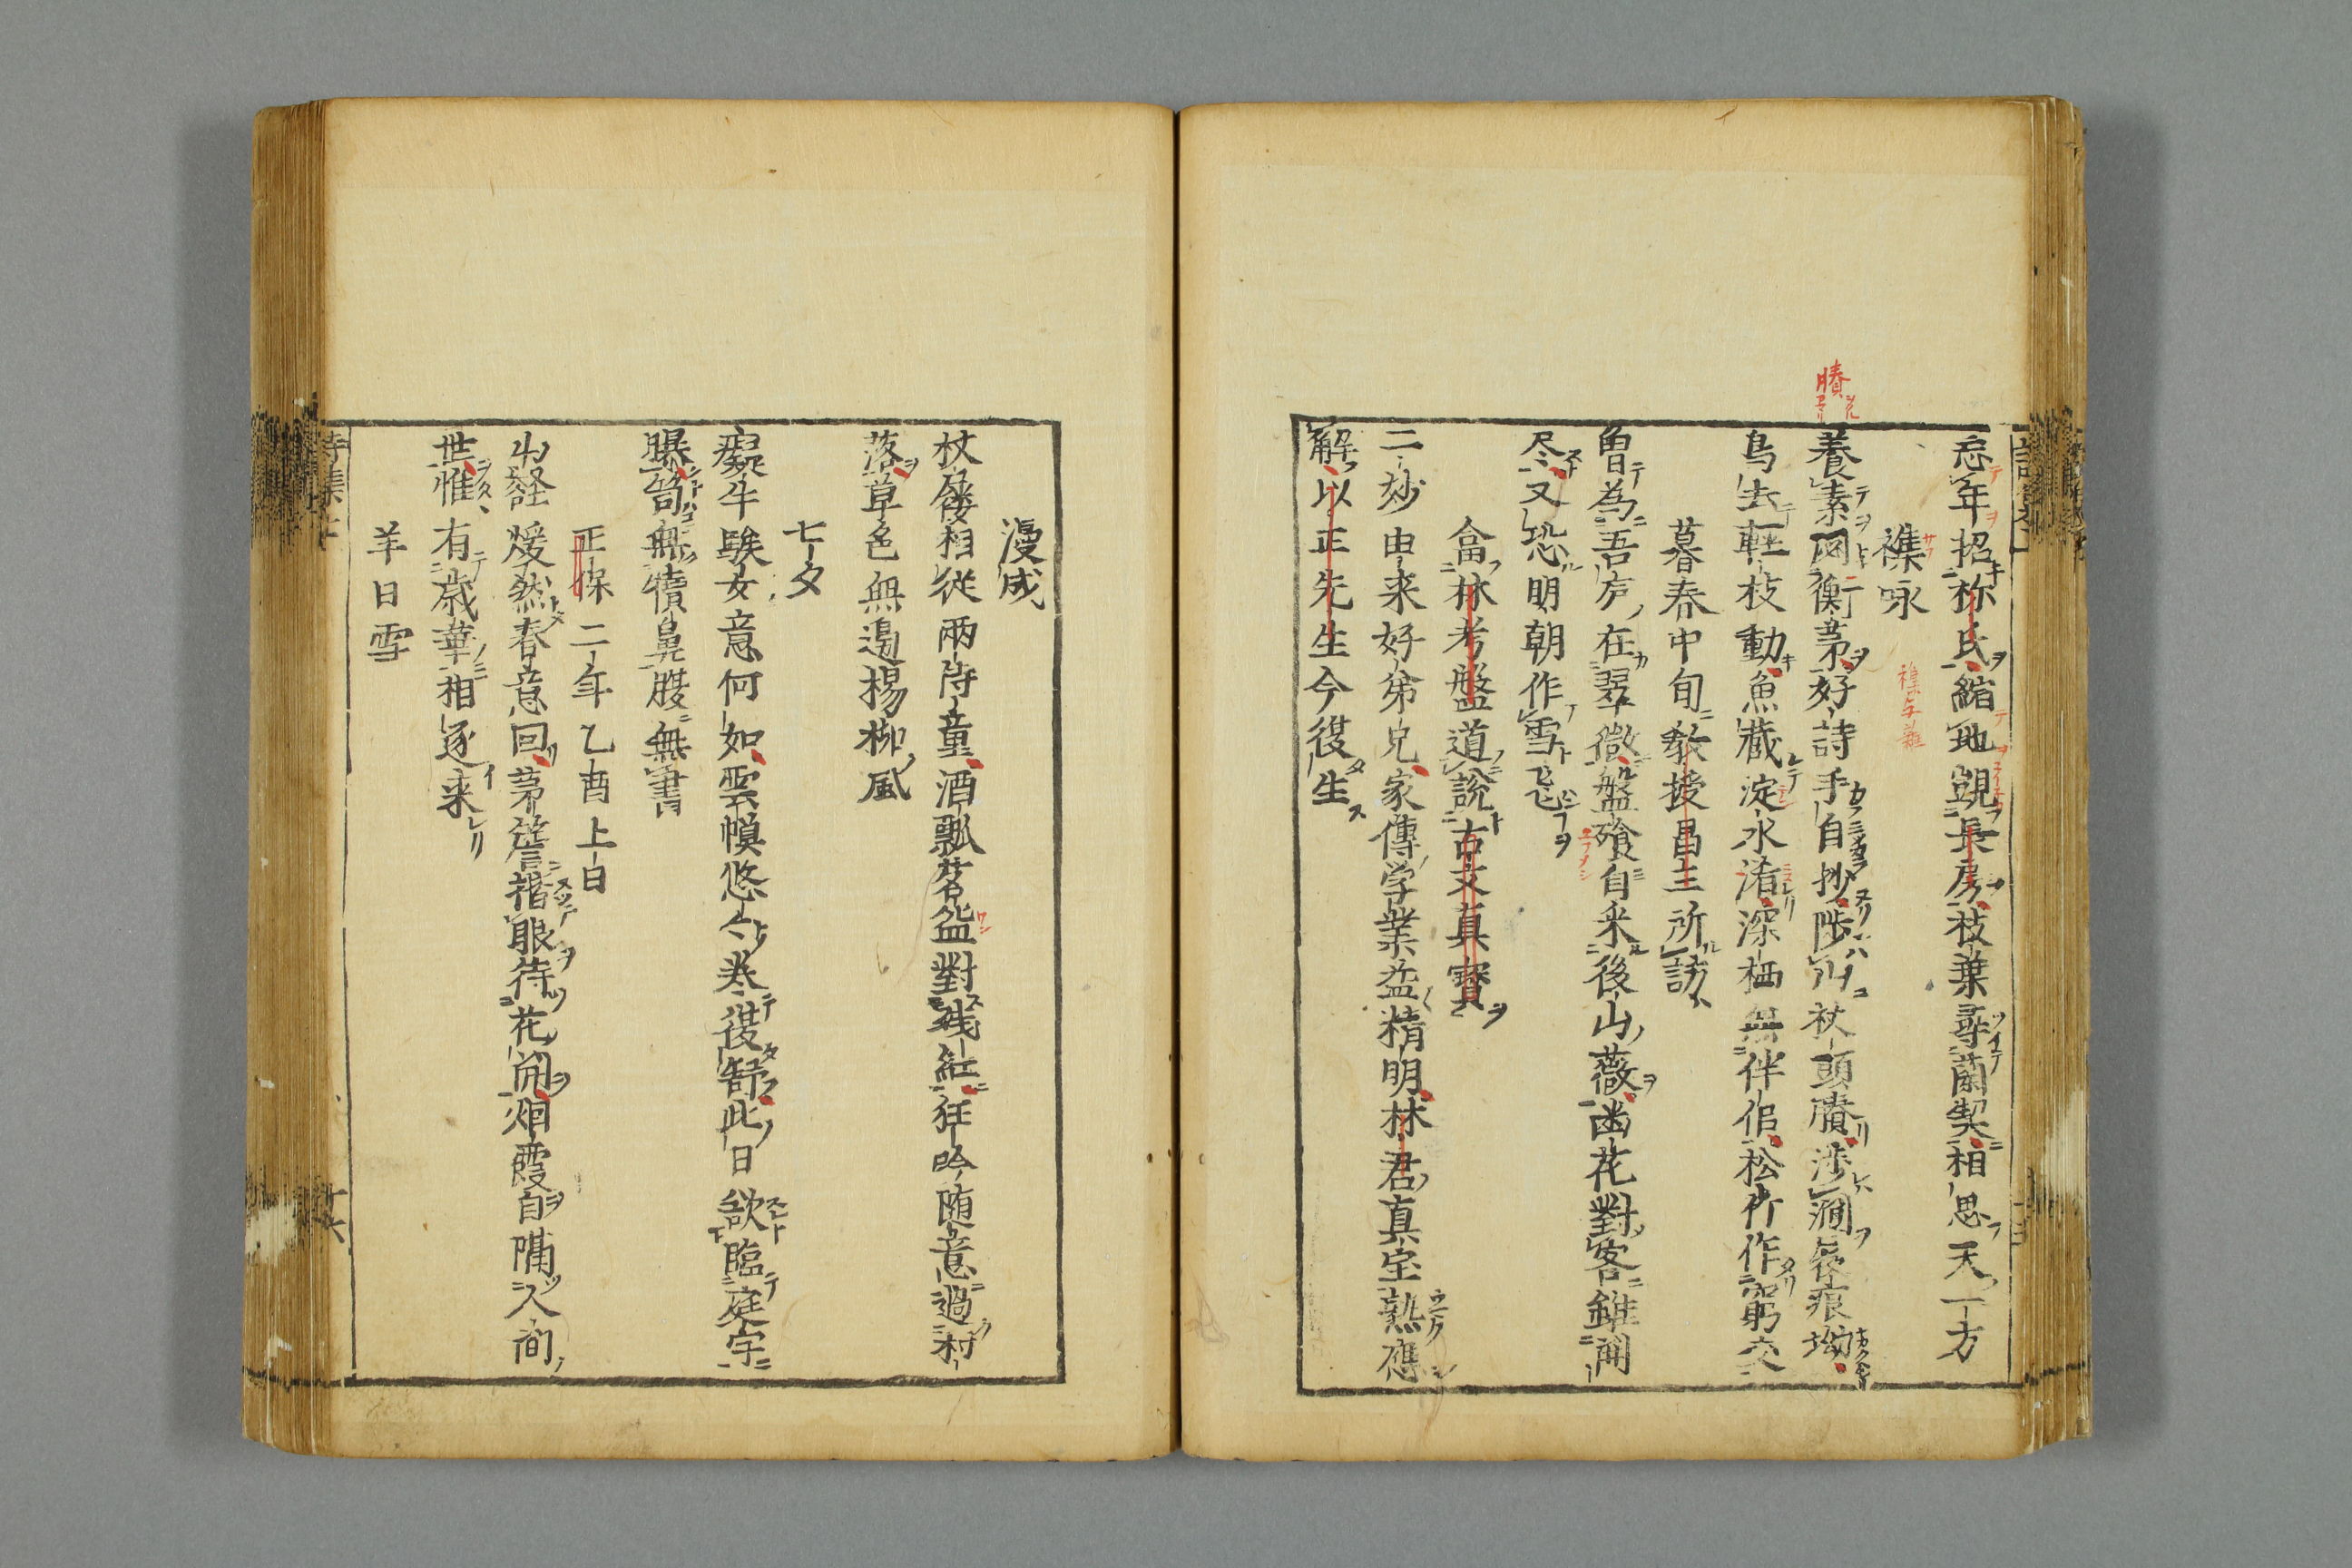 忘年招祢氏縮地覬長房枝葉尋蘭契相思天一方
襍咏
養素図衡茅好詩手自抄陟山杖頭賸渉澗屐痕坳
鳥去軽枝動魚藏淀水淆深栖無伴侶松竹作窮交
暮春中旬教授昌三所訪
曽為吾庐在翠微盤飱自釆後山薇幽花對客錐開
尽又恐明朝作雪飛
畣林考盤道説古文真寶
二妙由来好弟兄家傳学業益精明林君真宝熟應
解以正先生今復生
漫成
杖屨相従両侍童酒瓢茗盌對残紅狂吟随意過村
落草色無邉楊栁風
七夕
癡牛騃女意何如雲幙悠々巻復舒此日欲臨庭宇
曝笥無犢鼻腹無書
正保二年乙酉上日
山蹊煖然春意回茅簷褶眼待花開烟霞自隔人间
世惟有歳華相逐来
羊日雪
賸
襍与雜